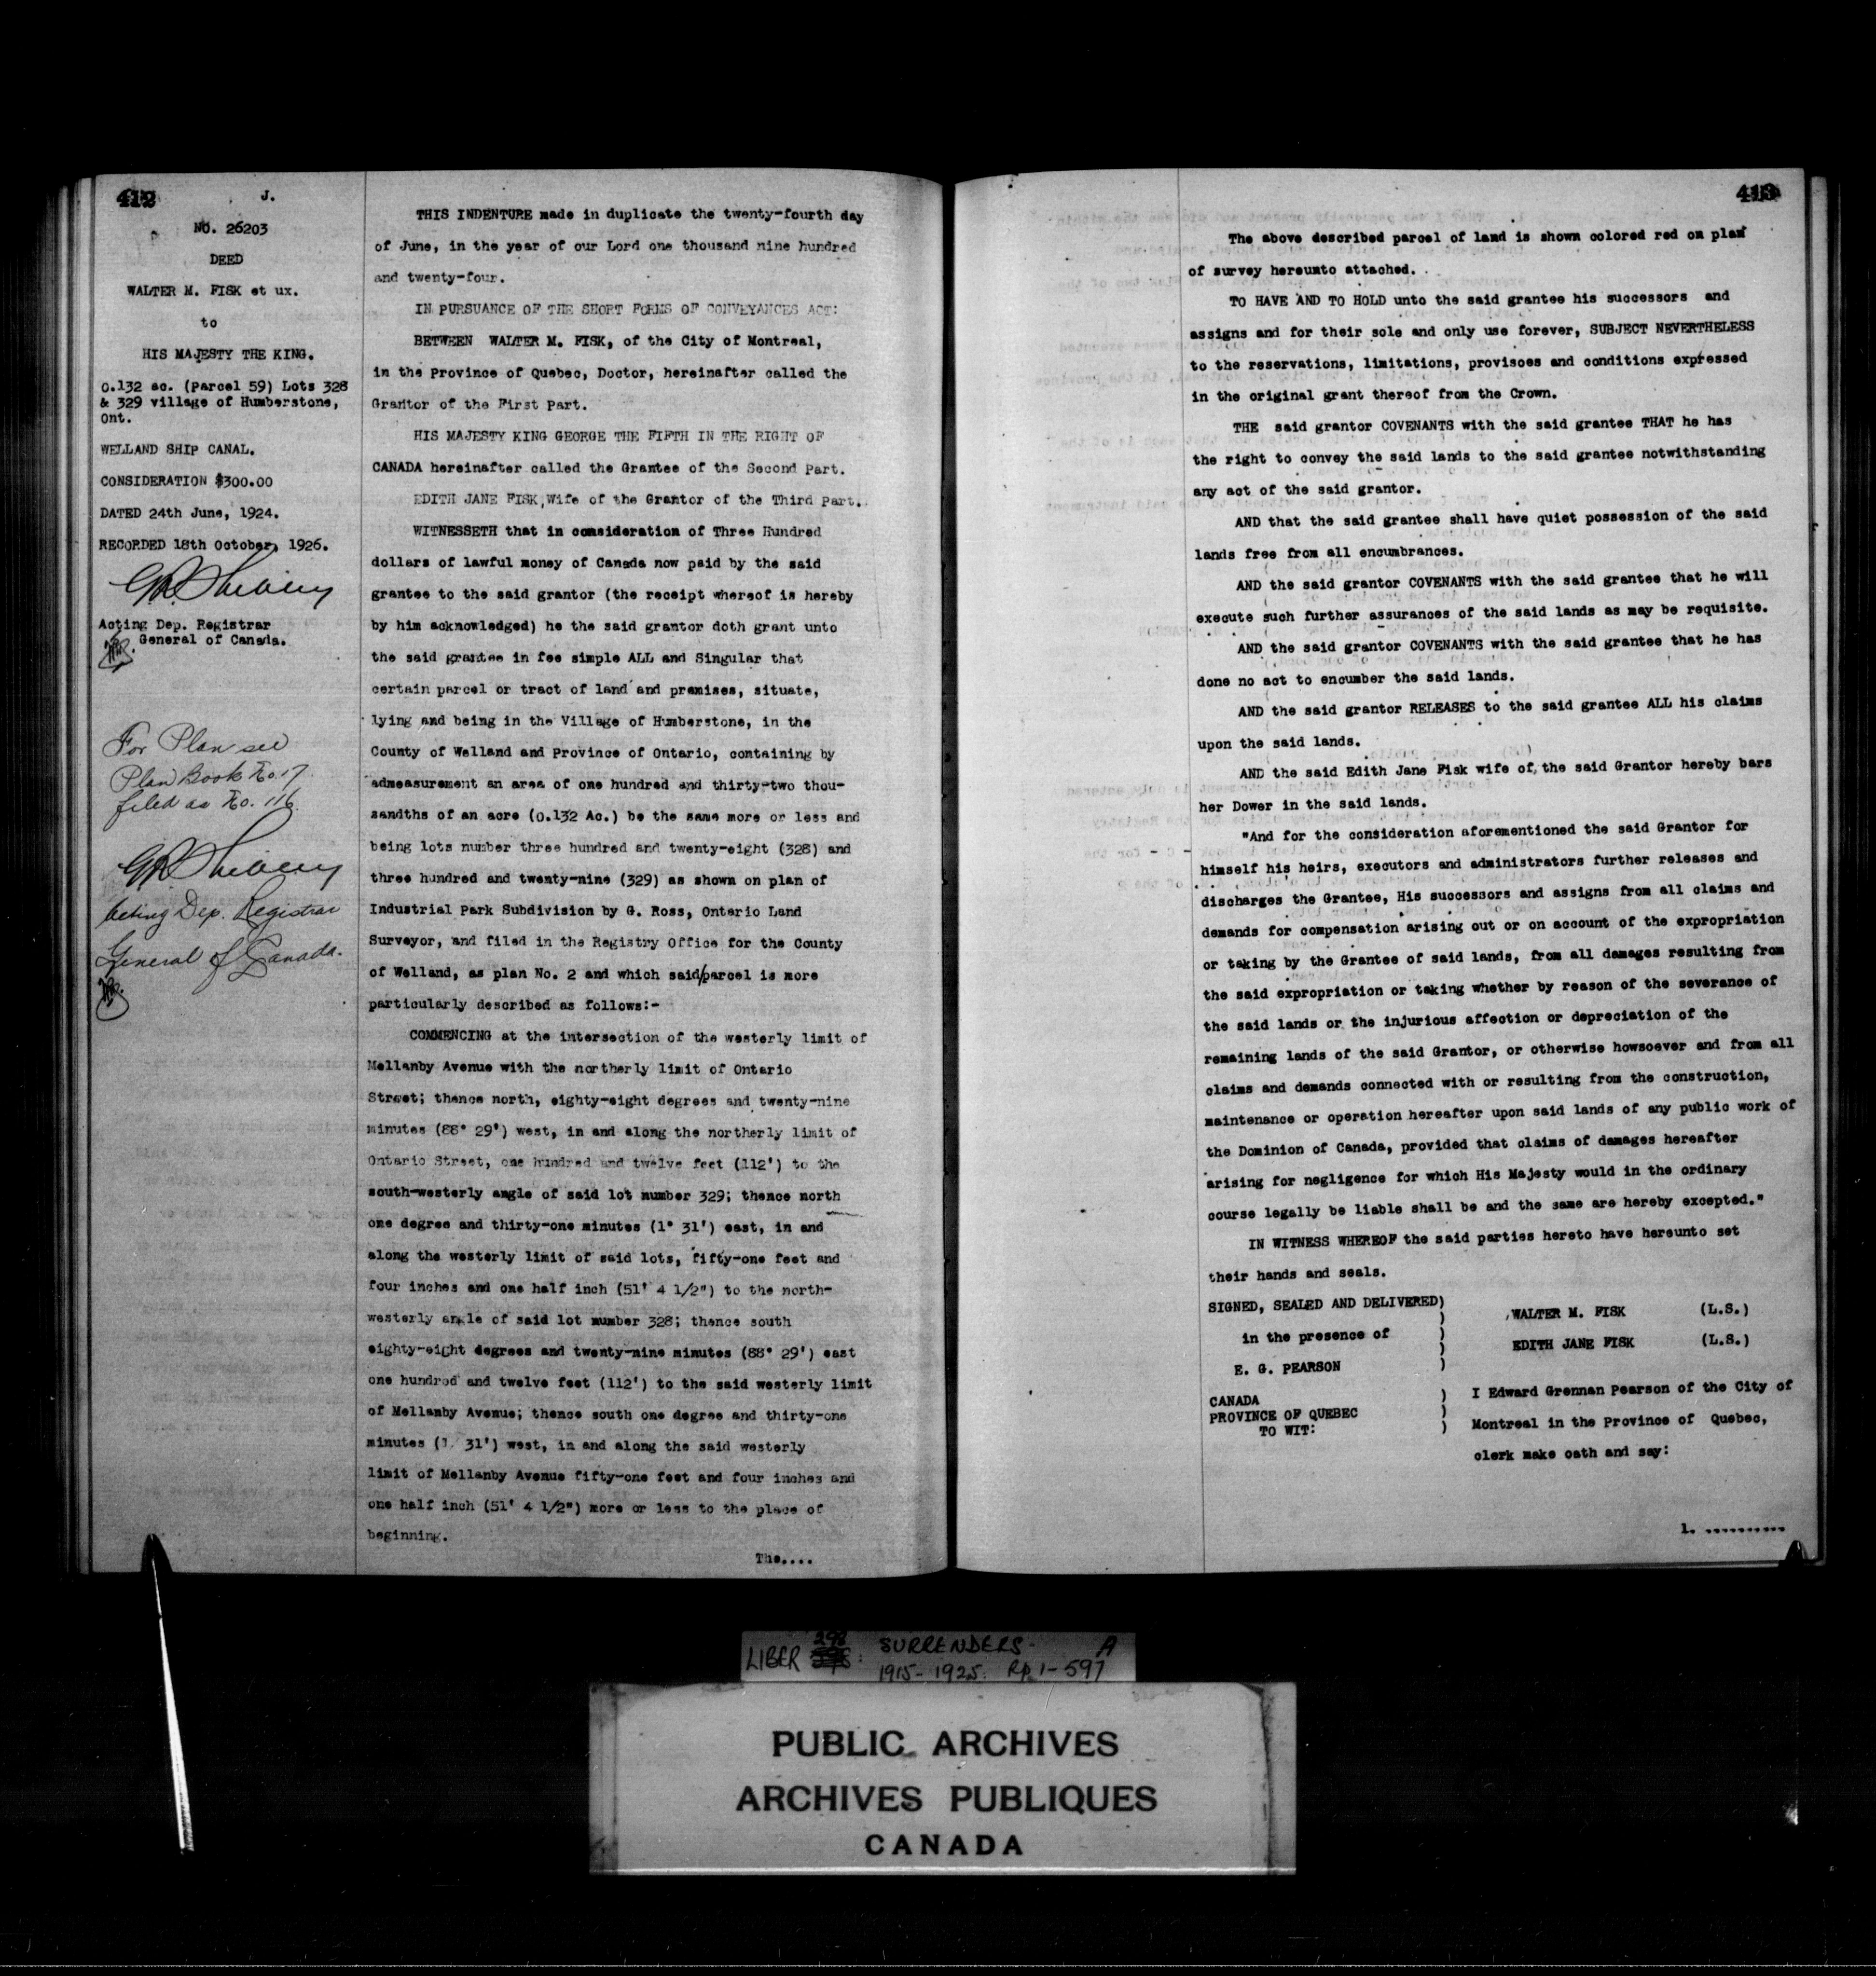 412
J.
NO. 26203
DEED
WALTER M. FISK et ux.
to
HIS MAJESTY THE KING.
0.132 ac. (Parcel 59) Lots 328
& 329 village of Humberstone,
Ont.
WELLAND SHIP CANAL.
CONSIDERATION $300.00
DATED 24th June, 1924.
RECORDED 18th October, 1926.
Acting Dep. Registrar
General of Canada.
For Plan see
Plan Book No. 17.
filed as No. 116.
Acting Dep. Registrar
General of Canada.
THIS INDENTURE made in duplicate the twenty-fourth day
of June, in the year of our Lord one thousand nine hundred
and twenty-four.
IN PURSUANCE OF THE SHORT FORMS OF CONVEYANCES ACT:
BETWEEN WALTER M. FISK, of the City of Montreal,
in the Province of Quebec, Doctor, hereinafter called the
Grantor of the First Part.
HIS MAJESTY KING GEORGE THE FIFTH IN THE RIGHT OF
CANADA hereinafter called the Grantee of the Second Part.
EDITH JANE FISK, Wife of the Grantor of the Third Part.
WITNESSETH that in consideration of Three Hundred
dollars of lawful money of Canada now paid by the said
grantee to the said grantor (the receipt whereof is hereby
by him acknowledged) he the said grantor doth grant unto
the said grantee in fee simple ALL and Singular that
certain parcel or tract of land and premises, situate,
lying and being in the Village of Humberstone, in the
County of Welland and Province of Ontario, containing by
admeasurement an area of one hundred and thirty-two thou-
sandths of an acre (0.132 Ac.) be the same more or less and
being lots number three hundred and twenty-eight (328) and
three hundred and twenty-nine (329) as shown on plan of
Industrial Park Subdivision by G. Ross, Ontario Land
Surveyor, and filed in the Registry Office for the County
of Welland, as plan No. 2 and which said/parcel is more
particularly described as follows:-
COMMENCING at the intersection of the westerly limit of
Mellanby Avenue with the northerly limit of Ontario
Street; thence north, eighty-eight degrees and twenty-nine
minutes (88° 29') west, in and along the northerly limit of
Ontario Street, one hundred and twelve feet (112') to the
south-westerly angle of said lot number 329; thence north
one degree and thirty-one minutes (1° 31') east, in and
along the westerly limit of said lots, fifty-one feet and
four inches and one half inch (51' 4 1/2") to the north-
westerly angle of said lot number 328; thence south
eighty-eight degrees and twenty-nine minutes (88° 29') east
one hundred and twelve feet (112') to the said westerly limit
of Mellanby Avenue; thence south one degree and thirty-one
minutes (1 31') west, in and along the said westerly
limit of Mellanby Avenue fifty-one feet and four inches and
one half inch (51' 4 1/2") more or less to the place of
beginning.
The....
413
The above described parcel of land is shown colored red on plan
of survey hereunto attached.
TO HAVE AND TO HOLD unto the said grantee his successors and
assigns and for their sole and only use forever, SUBJECT NEVERTHELESS
to the reservations, limitations, provisoes and conditions expressed
in the original grant thereof from the Crown.
THE said grantor COVENANTS with the said grantee THAT he has
the right to convey the said lands to the said grantee notwithstanding
any act of the said grantor.
AND that the said grantee shall have quiet possession of the said
lands free from all encumbrances.
AND the said grantor COVENANTS with the said grantee that he will
execute such further assurances of the said lands as may be requisite.
AND the said grantor COVENANTS with the said grantee that he has
done no act to encumber the said lands.
AND the said grantor RELEASES to the said grantee ALL his claims
upon the said lands.
AND the said Edith Jane Fisk wife of, the said Grantor hereby bars
her Dower in the said lands.
"And for the consideration aforementioned the said Grantor for
himself his heirs, executors and administrators further releases and
discharges the Grantee, His successors and assigns from all claims and
demands for compensation arising out or on account of the expropriation
or taking by the Grantee of said lands, from all damages resulting from
the said expropriation or taking whether by reason of the severance of
the said lands or the injurious affection or depreciation of the
remaining lands of the said Grantor, or otherwise howsoever and from all
claims and demands connected with or resulting from the construction,
maintenance or operation hereafter upon said lands of any public work of
the Dominion of Canada, provided that claims of damages hereafter
arising for negligence for which His Majesty would in the ordinary
course legally be liable shall be and the same are hereby excepted."
IN WITNESS WHEREOF the said parties hereto have hereunto set
their hands and seals.
SIGNED, SEALED AND DELIVERED)
in the presence of )
E. G. PEARSON )
WALTER M. FISK (L.S.)
EDITH JANE FISK (L.S.)
CANADA )
PROVINCE OF QUEBEC )
TO WIT: )
I Edward Grennan Pearson of the City of
Montreal in the Province of Quebec,
clerk make oath and say:
1. ..........
LIBER 298: SURRENDERS- A
1915-1925. Pp 1-597
PUBLIC ARCHIVES
ARCHIVES PUBLIQUES
CANADA